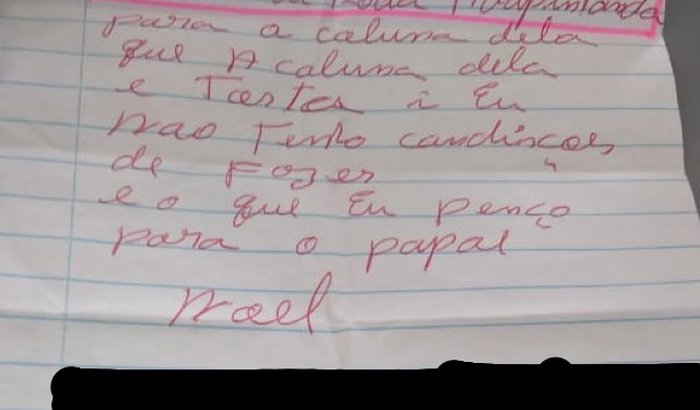 para a caluna dela
que A caluna dela
e Torta i Eu
nao Tenho candinçoes
de Fozer
e o que Eu penço
para o papai
noel